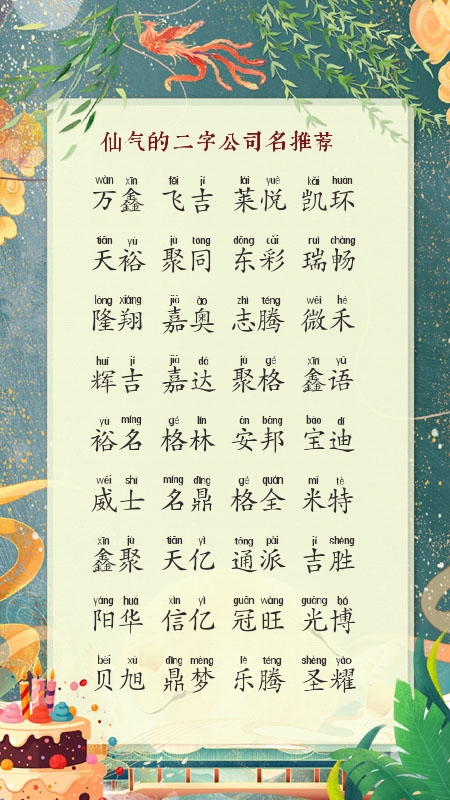 仙气的二字公司名推荐
wàn xīn fēi jí lái yuè kǎi huán
万鑫 飞吉 莱悦 凯环
tiān yù jù tóng dōng cǎi ruì chàng
天裕 聚同 东彩 瑞畅
lóng xiáng jiā ào zhì téng wēi hé
隆翔 嘉奥 志腾 微禾
huī jí jiā dá jù gé xīn yǔ
辉吉 嘉达 聚格 鑫语
yù míng gé lín ān bāng bǎo dí
裕名 格林 安邦 宝迪
wēi shì míng dǐng gé quán mǐ tè
威士 名鼎 格全 米特
xīn jù tiān yì tōng pài jí shèng
鑫聚 天亿 通派 吉胜
yáng huá xìn yì guān wàng guāng bó
阳华 信亿 冠旺 光博
bèi xù dǐng mèng lè téng shèng yào
贝旭 鼎梦 乐腾 圣耀